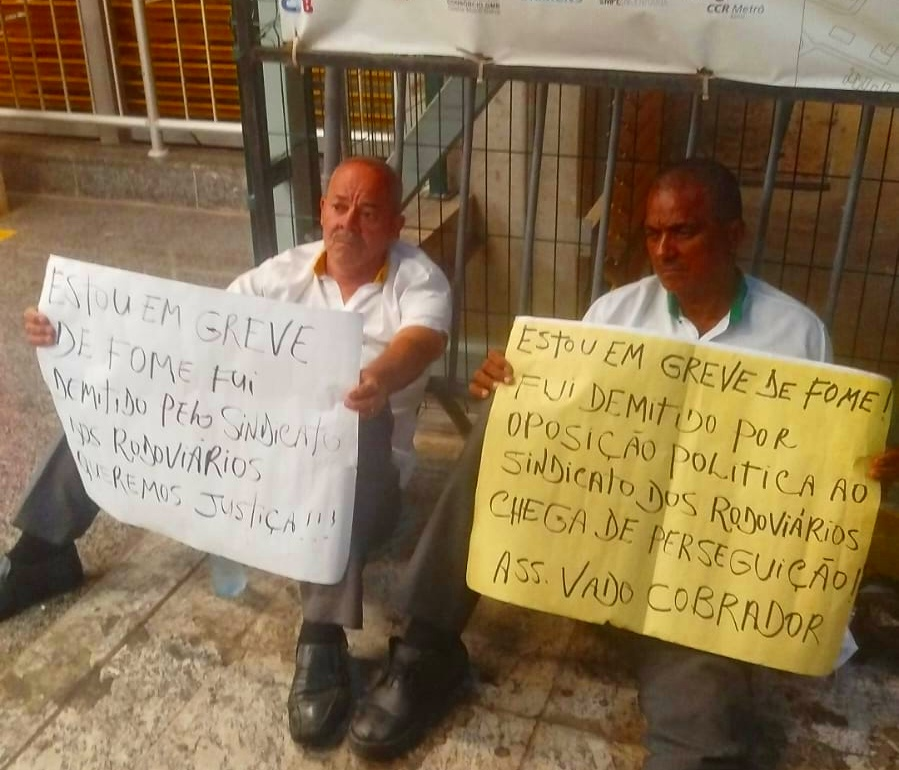 CCR Metrô
ESTOU EM GREVE
DE FOME FUI
DEMITIDO PELO SINDICATO
DOS RODOVIÁRIOS
QUEREMOS JUSTIÇA!!!
ESTOU EM GREVE DE FOME!
FUI DEMITIDO POR
OPOSIÇÃO POLITICA AO
SINDICATO DOS RODOVIÁRIOS
CHEGA DE PERSEGUIÇÃO!
ASS. VADO COBRADOR